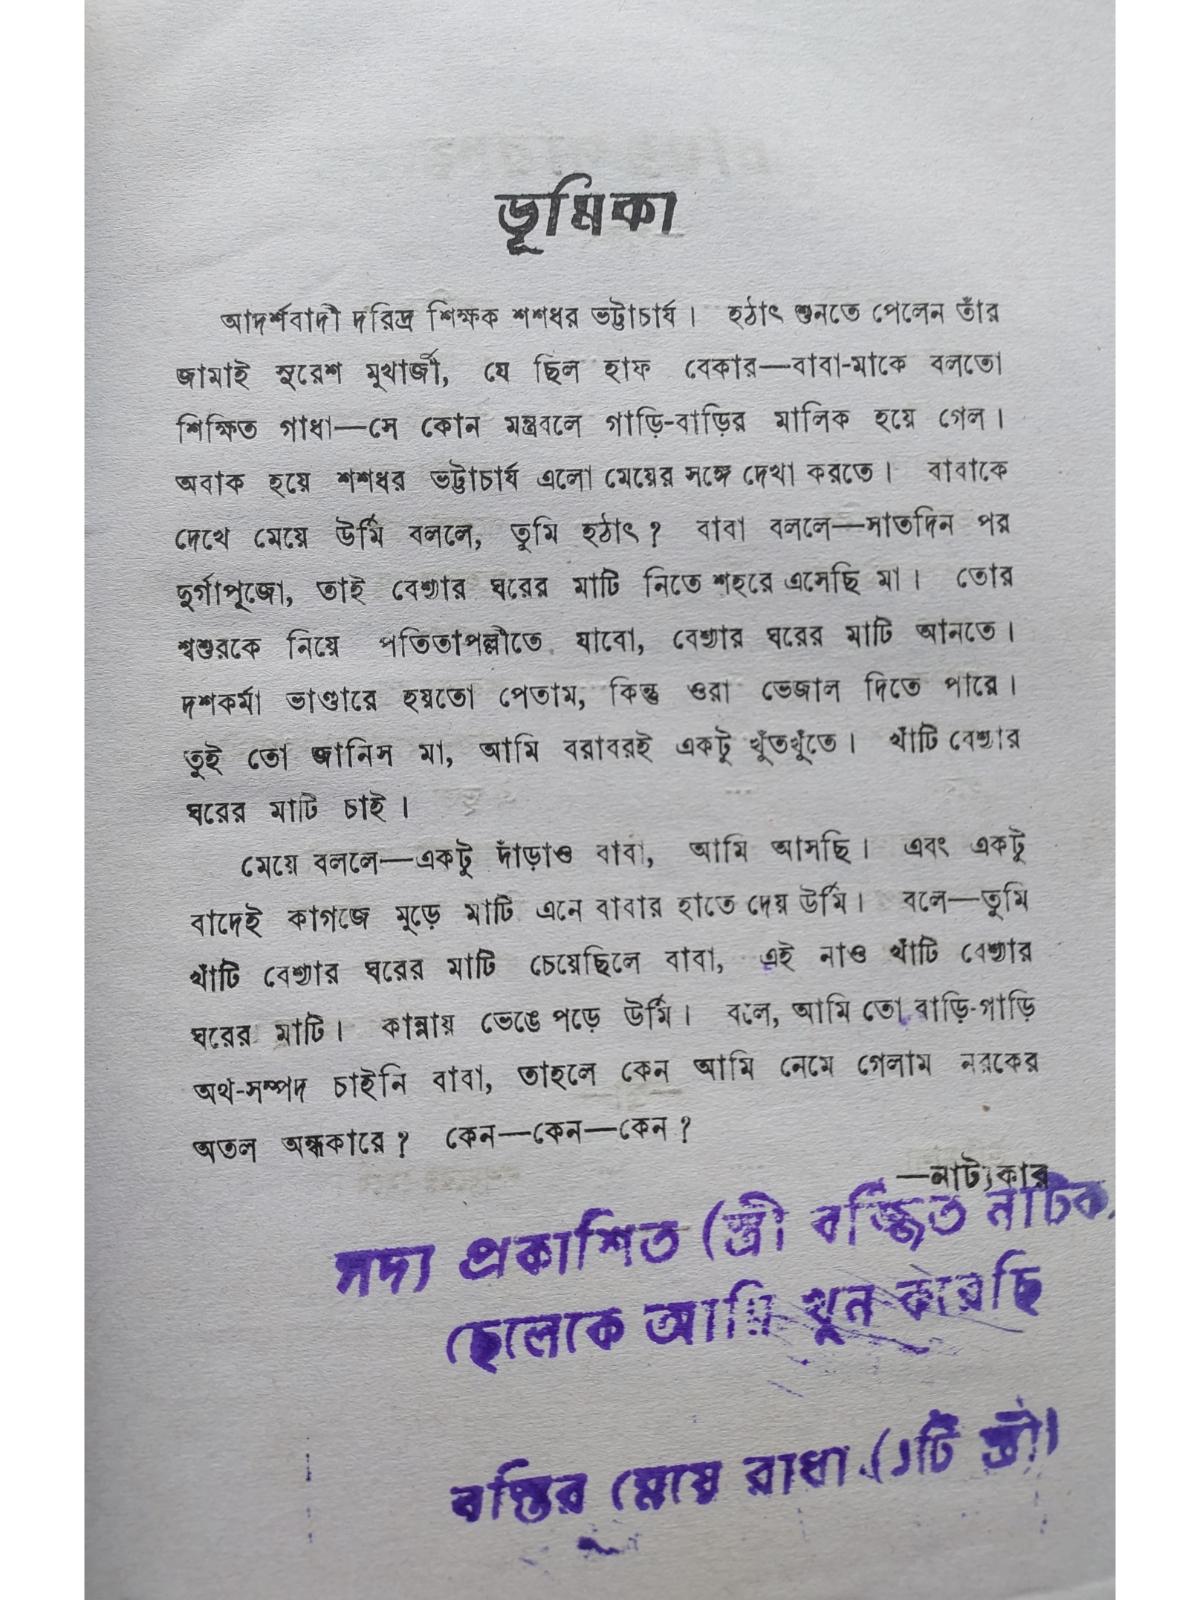 ভূমিকা
আদর্শবাদী দরিদ্র শিক্ষক শশধর ভট্টাচার্য। হঠাৎ শুনতে পেলেন তাঁর
জামাই সুরেশ মুখার্জী, যে ছিল হাফ বেকার—বাবা-মাকে বলতো
শিক্ষিত গাধা—সে কোন মন্ত্রবলে গাড়ি-বাড়ির মালিক হয়ে গেল।
অবাক হয়ে শশধর ভট্টাচার্য এলো মেয়ের সঙ্গে দেখা করতে। বাবাকে
দেখে মেয়ে উর্মি বললে, তুমি হঠাৎ? বাবা বললে—সাতদিন পর
দুর্গাপূজো, তাই বেশ্যার ঘরের মাটি নিতে শহরে এসেছি মা। তোর
শ্বশুরকে নিয়ে পতিতাপল্লীতে যাবো, বেশ্যার ঘরের মাটি আনতে।
দশকর্মা ভাণ্ডারে হয়তো পেতাম, কিন্তু ওরা ভেজাল দিতে পারে।
তুই তো জানিস মা, আমি বরাবরই একটু খুঁতখুঁতে। খাঁটি বেশ্যার
ঘরের মাটি চাই।
মেয়ে বললে—একটু দাঁড়াও বাবা, আমি আসছি। এবং একটু
বাদেই কাগজে মুড়ে মাটি এনে বাবার হাতে দেয় উর্মি। বলে—তুমি
খাঁটি বেশ্যার ঘরের মাটি চেয়েছিলে বাবা, এই নাও খাঁটি বেশ্যার
ঘরের মাটি। কান্নায় ভেঙে পড়ে উর্মি। বলে, আমি তো বাড়ি-গাড়ি
অর্থ-সম্পদ চাইনি বাবা, তাহলে কেন আমি নেমে গেলাম নরকের
অতল অন্ধকারে? কেন—কেন—কেন?
—নাট্যকার
সদ্য প্রকাশিত (স্ত্রী বর্জ্জিত নাটক)
ছেলেকে আমি খুন করেছি
বস্তির মেয়ে রাধা (১টি স্ত্রী)